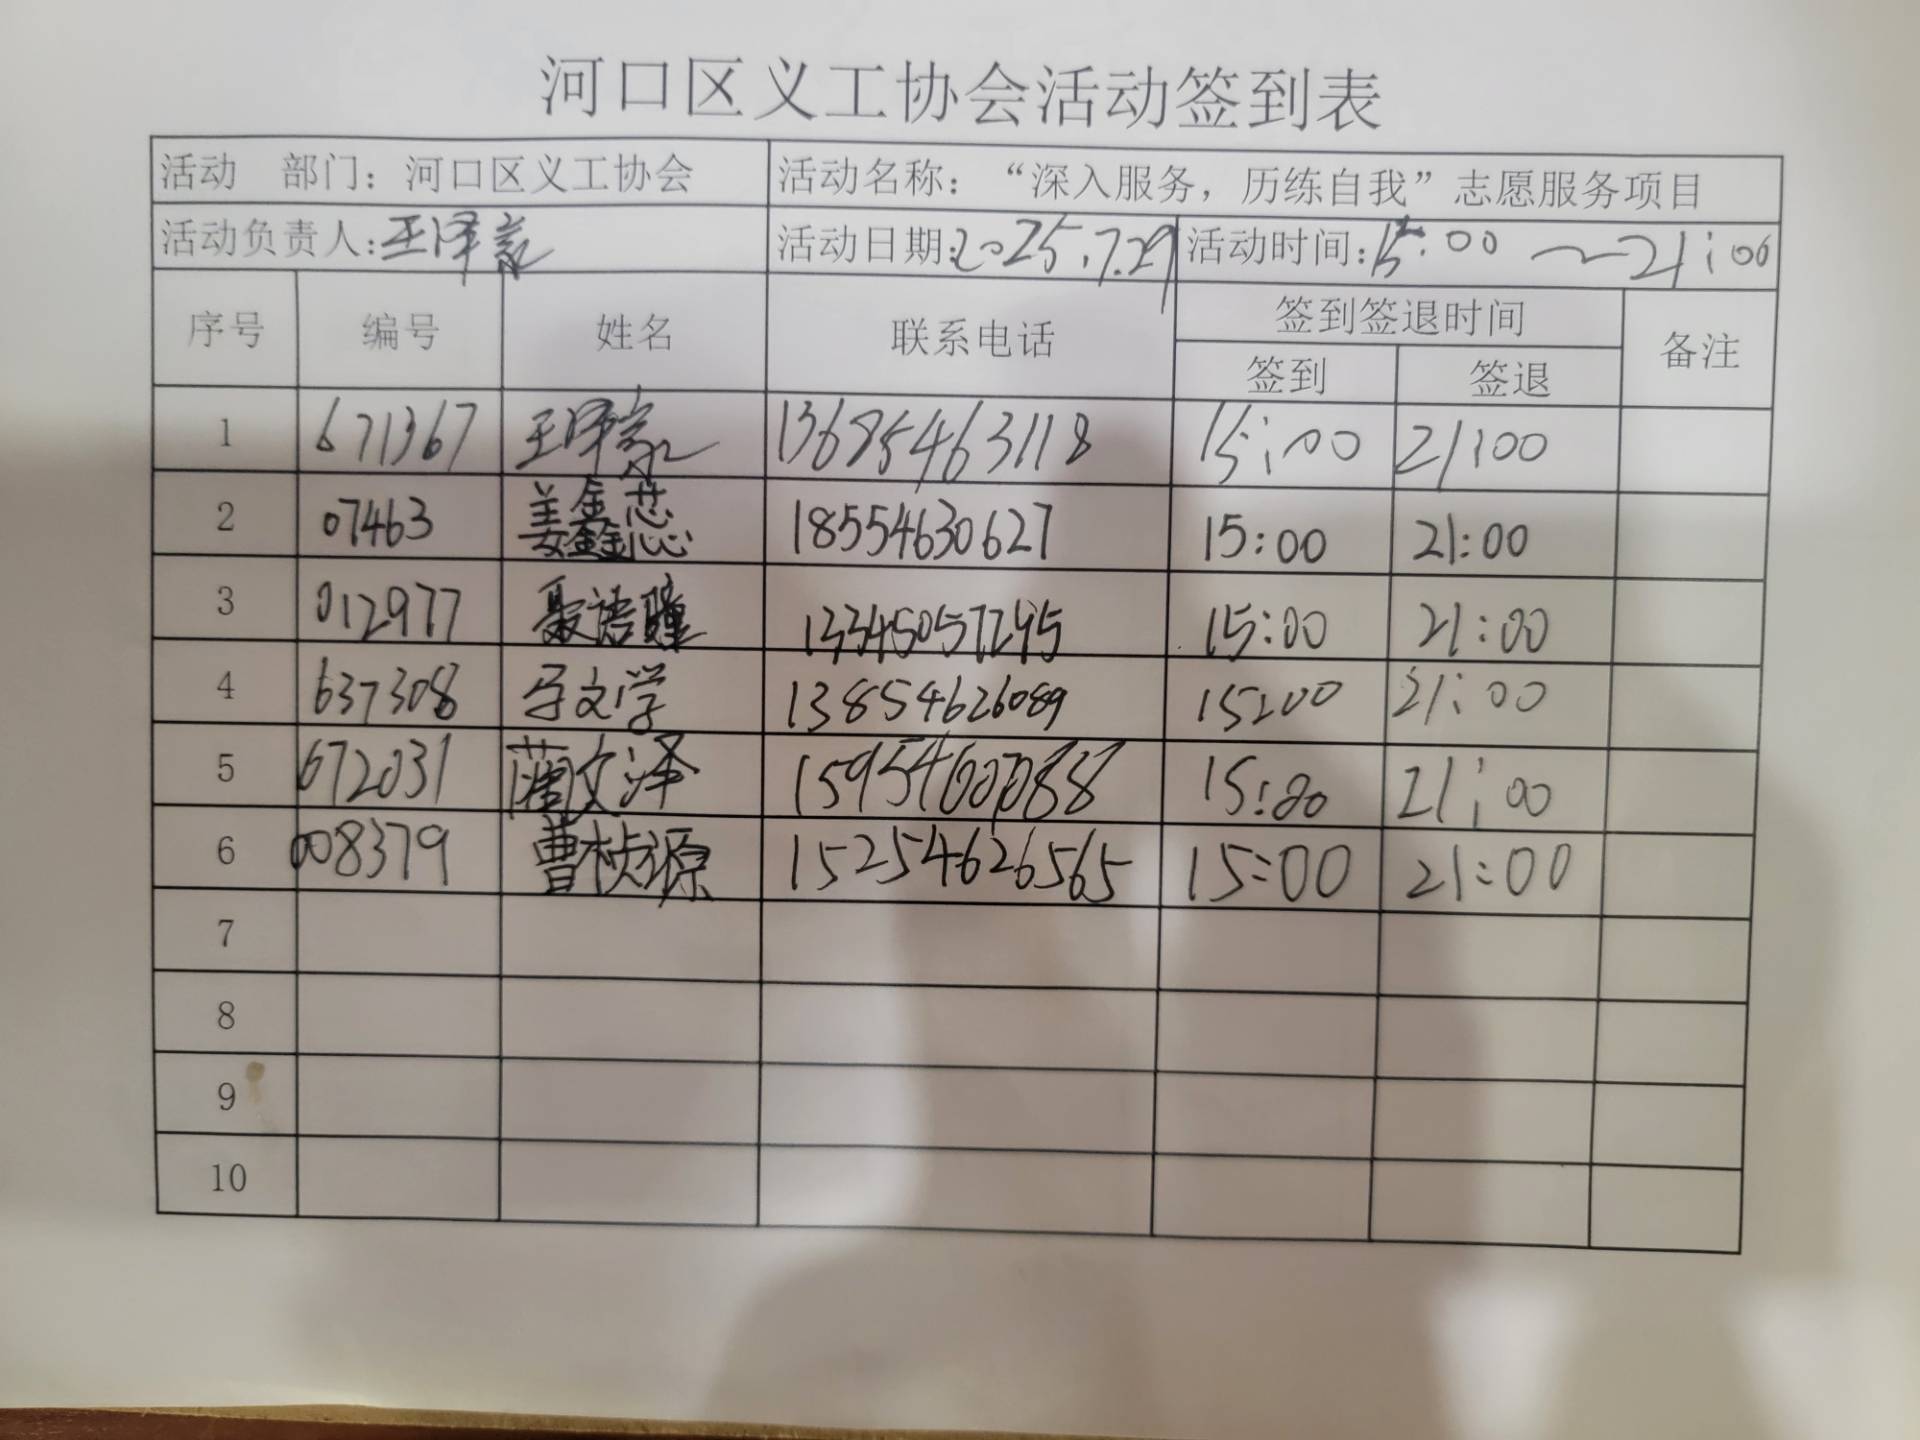 河口区义工协会活动签到表
活动 部门：河口区义工协会 活动名称：“深入服务，历练自我”志愿服务项目
活动负责人：王泽家 活动日期：2025.7.29 活动时间：15：00～21：00
序号 编号 姓名 联系电话 签到签退时间 备注
签到 签退
1 671367 王泽家 13685463118 15：00 21：00
2 07463 姜鑫蕊 18554630627 15:00 21:00
3 012977 聂语瞳 13345057295 15:00 21:00
4 637308 马文学 13854626089 15:00 21:00
5 672031 文泽 15:00 21:00
6 008379 曹桢源 15254626565 15:00 21:00
7
8
9
10